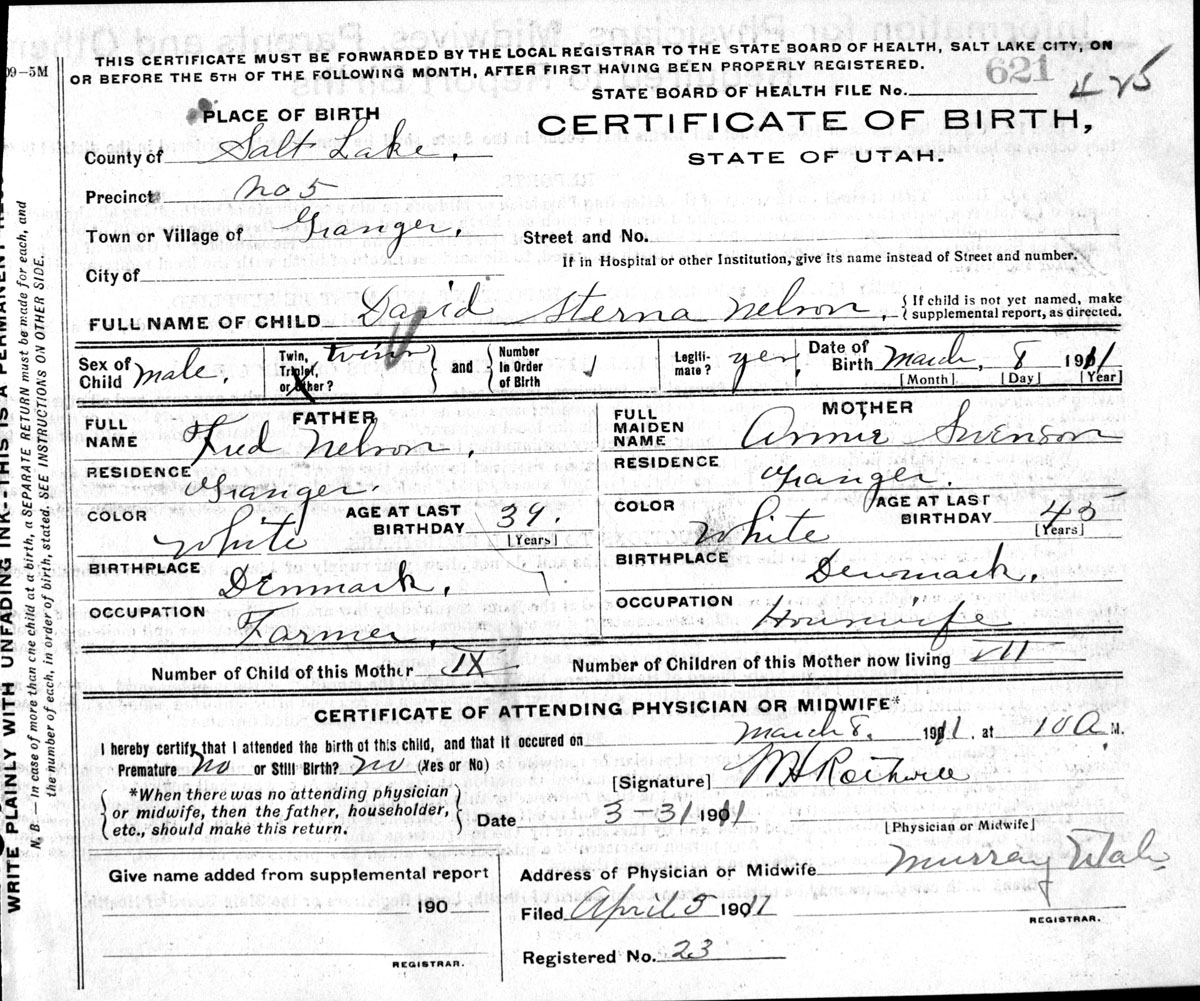 THIS CERTIFICATE MUST BE FORWARDED BY THE LOCAL REGISTRAR TO THE STATE BOARD OF HEALTH, SALT LAKE CITY, ON
OR BEFORE THE 5TH OF THE FOLLOWING MONTH, AFTER FIRST HAVING BEEN PROPERLY REGISTERED.
09-5M
621
425
STATE BOARD OF HEALTH FILE No.
PLACE OF BIRTH
CERTIFICATE OF BIRTH,
STATE OF UTAH.
County of Salt Lake.
Precinct No 5
Town or Village of Granger.
Street and No.
If in Hospital or other Institution, give its name instead of Street and number.
City of
FULL NAME OF CHILD David Sterna Nelson, {If child is not yet named, make supplemental report, as directed.
Sex of Child male. Twin, Triplet, or Other? twin and Number In Order of Birth 1 Legitimate? yes Date of Birth March, 8 1911
[Month] [Day] [Year]
FATHER
FULL NAME Fred Nelson.
RESIDENCE Granger.
COLOR White AGE AT LAST BIRTHDAY 39. [Years]
BIRTHPLACE Denmark.
OCCUPATION Farmer.
MOTHER
FULL MAIDEN NAME Annie Swenson
RESIDENCE Granger.
COLOR White AGE AT LAST BIRTHDAY 43 [Years]
BIRTHPLACE Denmark.
OCCUPATION Housiwife
Number of Child of this Mother IX Number of Children of this Mother now living VII
CERTIFICATE OF ATTENDING PHYSICIAN OR MIDWIFE*
I hereby certify that I attended the birth of this child, and that it occured on March 8. 1911. at 10 A M.
Premature No or Still Birth? No (Yes or No)
[Signature] M H Rothwell
{*When there was no attending physician
or midwife, then the father, householder,
etc., should make this return.}
Date 3-31 1911
[Physician or Midwife]
Give name added from supplemental report
190
REGISTRAR.
Address of Physician or Midwife Murray Utah
Filed April 5 1911
REGISTRAR.
Registered No. 23
WRITE PLAINLY WITH UNFADING INK-THIS IS A PERMANENT
N. B.—In case of more than one child at a birth, a SEPARATE RETURN must be made for each, and
the number of each, in order of birth, stated. SEE INSTRUCTIONS ON OTHER SIDE.